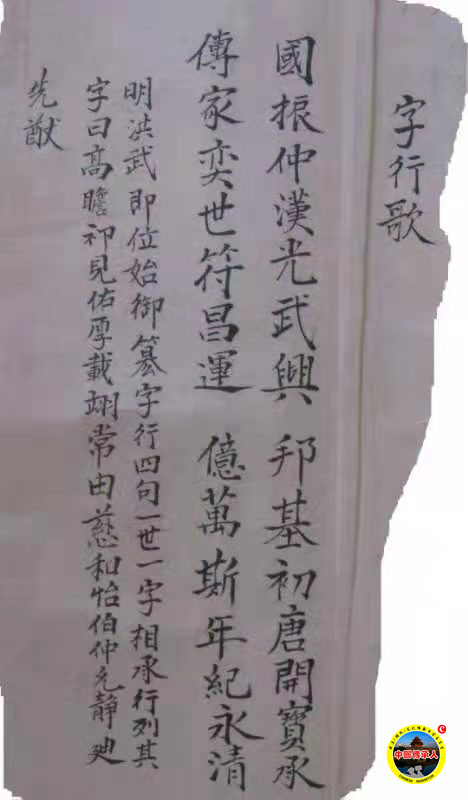 字行歌
國振仲漢光武興 邦基初唐開寶承
傳家奕世符昌運 億萬斯年紀永清
明洪武即位始御篡字行四句一世一字相承行列其
字曰高瞻祁見佑厚載翊常由慈和怡伯仲先靜迪
先猷
中國傳承人